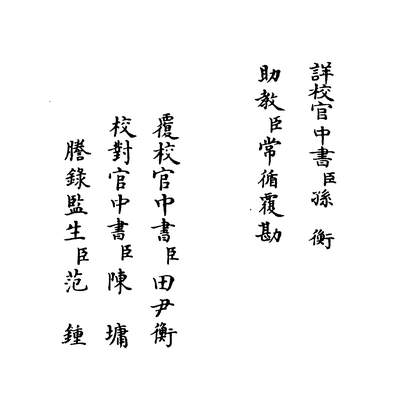 詳校官中書臣孫衡
助教臣常循覆勘
覆校官中書臣田尹衡
校對官中書臣陳墉
謄錄監生臣范鍾